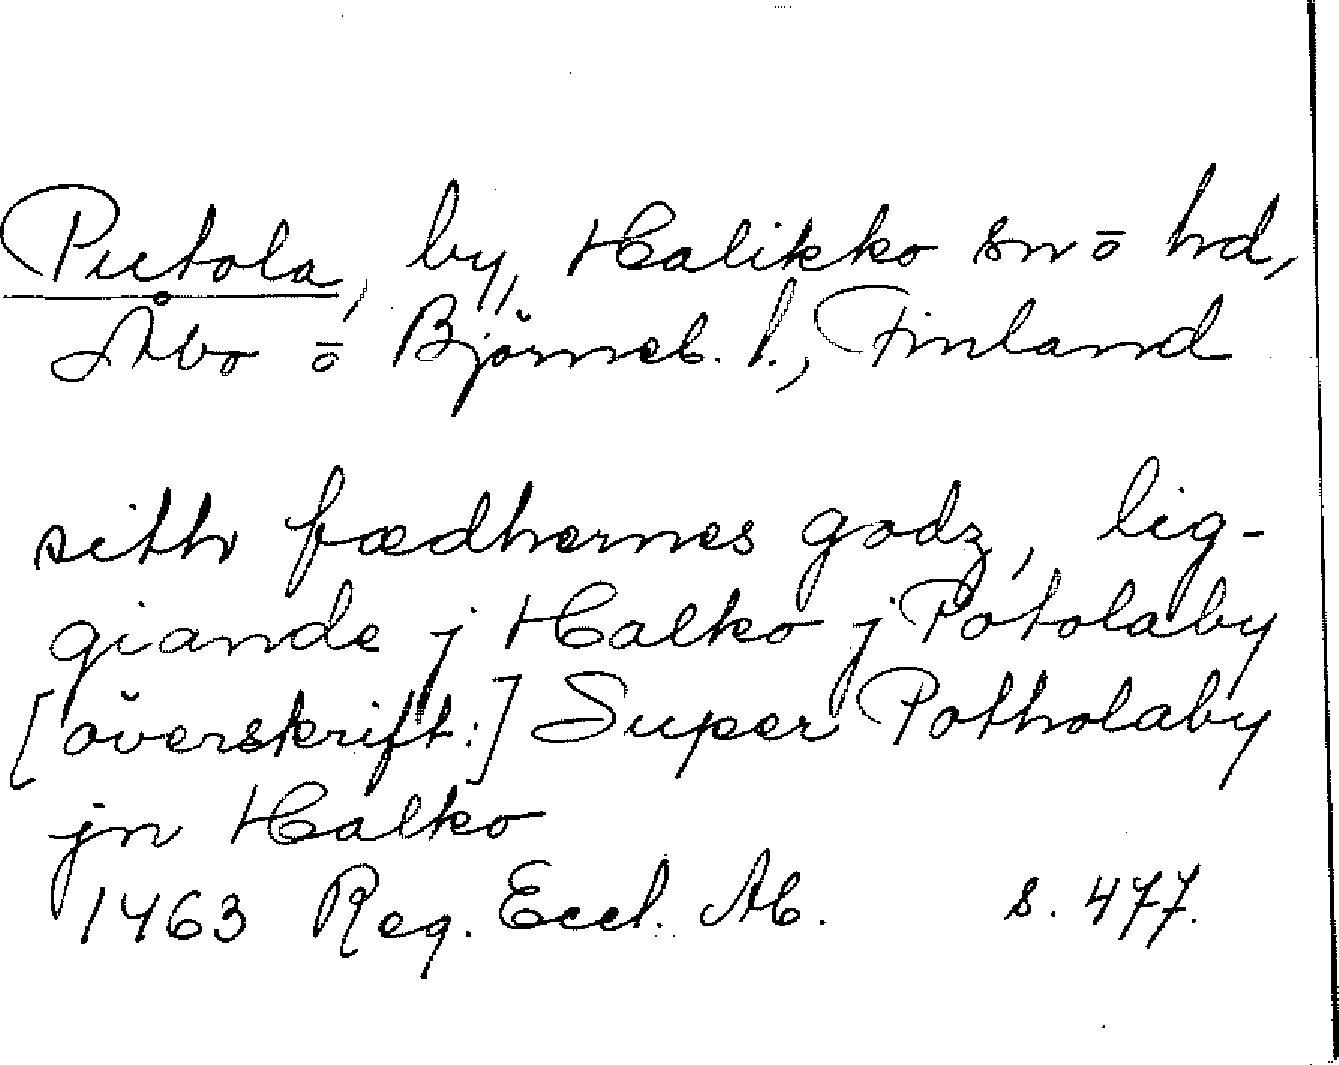 Putola, by, Halikko sn o hd,
Åbo o Björneb. l., Finland
sith fædhernes godz, lig-
giande j Halko j Potolaby
[överskrift:] Super Potholaby
jn Halko
1463 Reg. Eccl. Ab. s. 477.